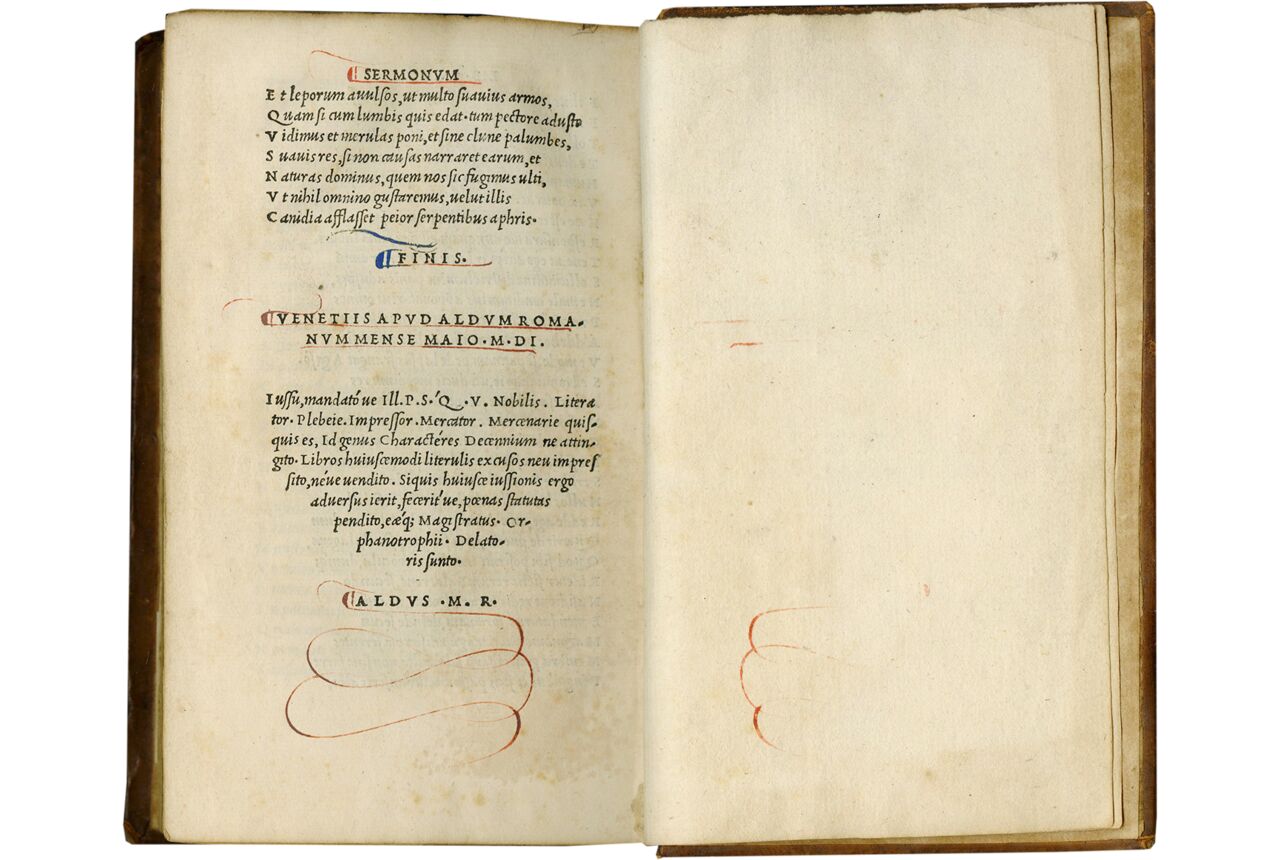 SERMONVM
E t leporum auulsos, ut multo suauius armos,
Q uam si cum lumbis quis edat·tum pectore adusto
V idimus et merulas poni, et sine clune palumbes,
S uauis res, si non causas narraret earum, et
N aturas dominus, quem nos sic fugimus ulti,
V t nihil omnino gustaremus, uelut illis
C anidia afflasset peior serpentibus aphris·
FINIS.
VENETIIS APVD ALDVM ROMA-
NVM MENSE MAIO·M·DI.
Iussu, mandatóue Ill.P.S.'Q.V. Nobilis. Litera
tor· Plebeie. Impressor. Mercator. Mercenarie quis-
quis es, Id genus Charactéres Decennium ne attin-
gito· Libros huiuscemodi literulis excusos neu impres
sito, néue uendito. Siquis huiusce iussionis ergo
aduersus ierit, fecerit'ue, pœnas statutas
pendito, eæq; Magistratus· Or-
phanotrophii· Delato-
ris sunto·
ALDVS·M.R·